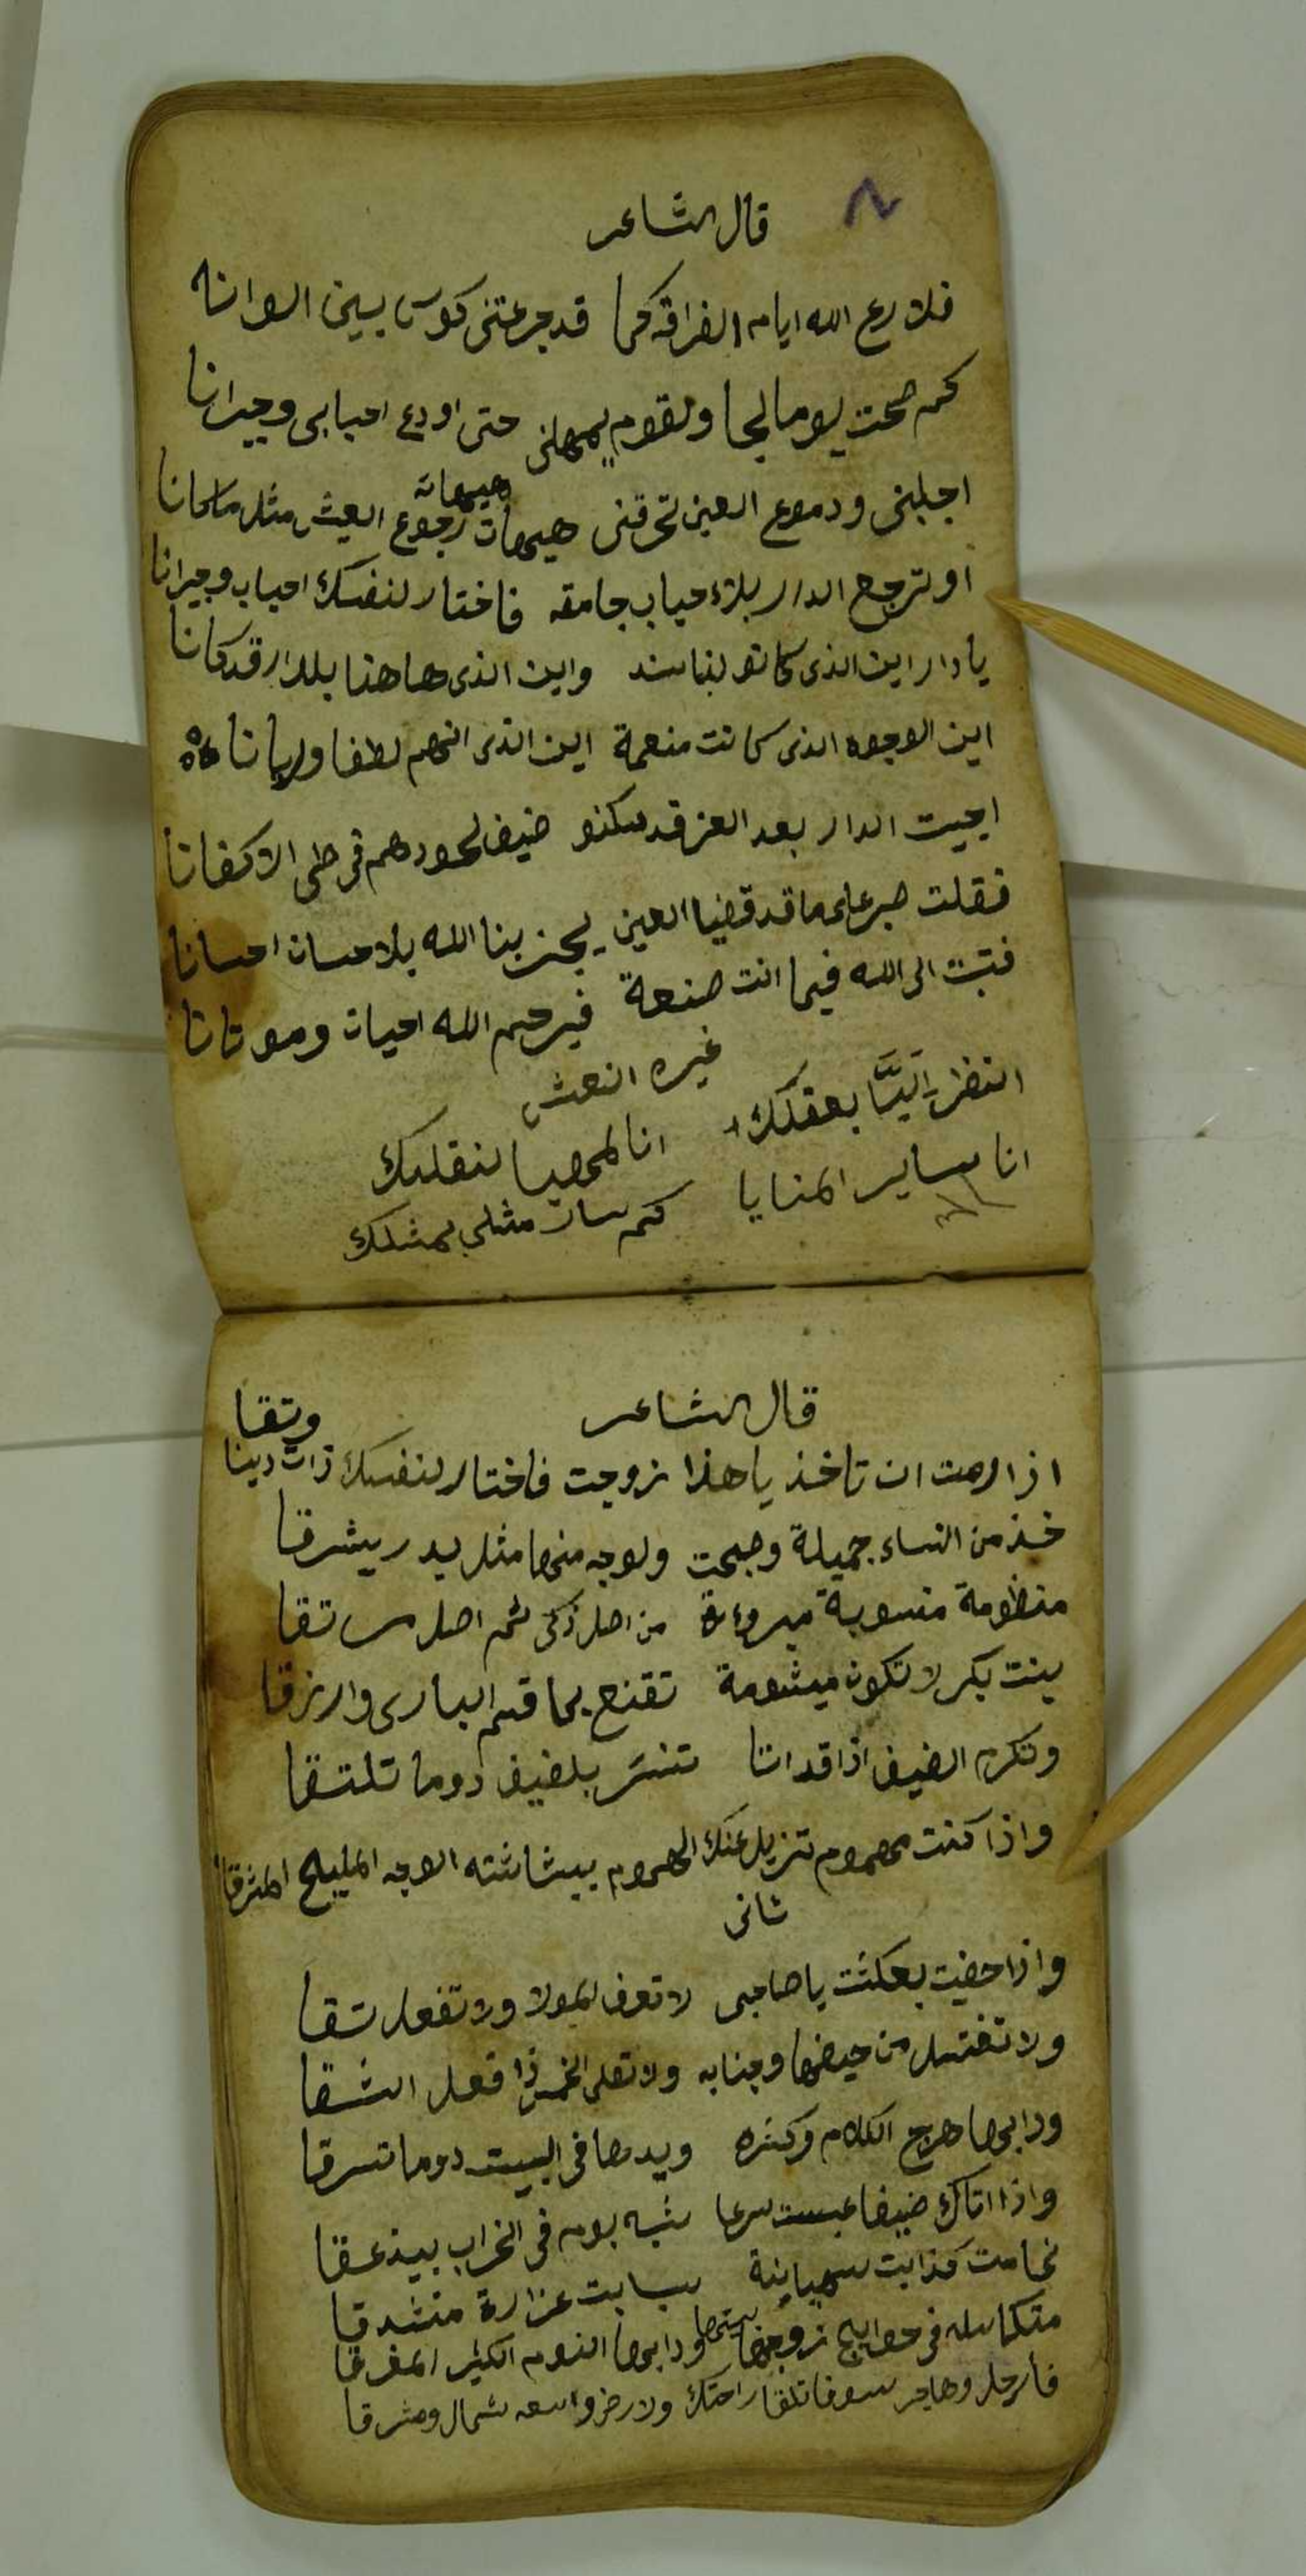 قال الشاعر
فلا رع الله ايام الفراقه كما قد جرعتنى كوس بين الوانه
كم صحت يوما لجا ولقوم يمهلنى حتى اودع احبابى وجيرانا
هيهات
اجلبنى ودموع العين تحرقنى هيهات رجوع العيش مثل ما كانا
او ترجع الدار بلاء حباب جامقه فاختار لنفسك احباب وجيرانا
يا دار اين الذى كانو لنا سند واين الذى هاهنا بلدار قد كانا
اين الوجوه الذى كانت منعمة اين الذى انهم لطفا وريانا
اجيت الدار بعد العز قد سكنو ضيف لحودهم فى طى الاكفانا
فقلت صبر على ما قد قضيا العين يجزينا الله بلاحسان احسانا
فتبت الى الله فيما انت صنعة فيرحم الله احيات وموتانا
غيره النعش
انظر اليّا بعقلك انا لمهيا لنقلك
انا ساير المنايا كم سار مثلى بمثلك
قال الشاعر
وتقا
اذا رمت ان تاخذ يا هذا زوجت فاختار لنفسك ذات دينا
خذ من النساء جميلة وجبحت ولوجه منها مثل بدر يشرقا
منظومة منسوبة من اصل زكى ثم اصل تقا
بنت بكر لا تكون ميشومة تقنع بما قسم البارى وارزقا
وتكرم الضيف اذا قد اتا تنسر بلضيف دوما تلتقا
واذا كنت مهموم تزيل عنك الهموم ببشاشته الوجه المليح المشرقا
ثانى
واذا حضيت بعكشت يا صاحبى لا تعرف لمولا ولا تفعل تقا
ولا تغتسل من حيضها وجنابه ولا تصلى الخمس ذا فعل الشقا
ودابها هرج الكلام وكثره ويدها فى البيت دوما تسرقا
واذا اتاك ضيفا عبست سرعا شبه بوم فى الخراب بيذعقا
نمامت كذابت سبابت غزارة منشدقا
متكاسله فى حوايج زوجها بيتها ودابها النوم الكثير المغرقا
فارحل وهاجر سوفا تلقا راحتك ولارض واسعه شمال ومشرقا